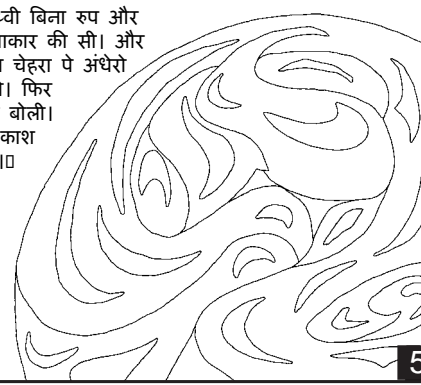 बिना रुप और
आकार की सी। और
चेहरा पे अंधेरो
फिर
बोली।
5